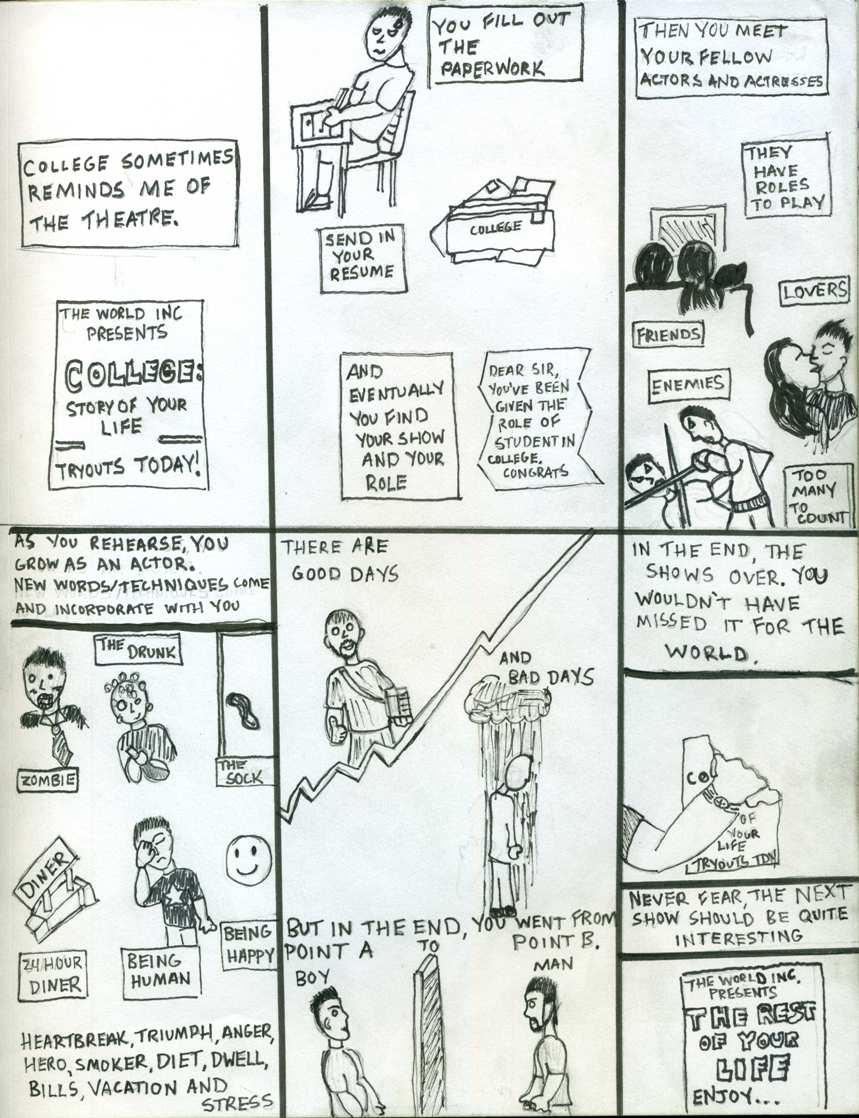 COLLEGE SOMETIMES
REMINDS ME OF
THE THEATRE.
THE WORLD INC
PRESENTS
COLLEGE:
STORY OF YOUR
LIFE
TRYOUTS TODAY!
YOU FILL OUT
THE
PAPERWORK
SEND IN
YOUR
RESUME
COLLEGE
AND
EVENTUALLY
YOU FIND
YOUR SHOW
AND YOUR
ROLE
DEAR SIR,
YOU'VE BEEN
GIVEN THE
ROLE OF
STUDENT IN
COLLEGE.
CONGRATS
THEN YOU MEET
YOUR FELLOW
ACTORS AND ACTRESSES
THEY
HAVE
ROLES
TO PLAY
LOVERS
FRIENDS
ENEMIES
TOO
MANY
TO
COUNT
AS YOU REHEARSE, YOU
GROW AS AN ACTOR.
NEW WORDS/TECHNIQUES COME
AND INCORPORATE WITH YOU
THE
DRUNK
ZOMBIE
THE
SOCK
DINER
24/HOUR
DINER
BEING
HUMAN
BEING
HAPPY
HEARTBREAK, TRIUMPH, ANGER,
HERO, SMOKER, DIET, DWELL,
BILLS, VACATION AND
STRESS
THERE ARE
GOOD DAYS
AND
BAD DAYS
BUT IN THE END, YOU WENT FROM
POINT A TO POINT B.
BOY
MAN
IN THE END, THE
SHOWS OVER. YOU
WOULDN'T HAVE
MISSED IT FOR THE
WORLD.
CO
OF
YOUR
LIFE
TRYOUTS TDY
NEVER FEAR, THE NEXT
SHOW SHOULD BE QUITE
INTERESTING
THE WORLD INC.
PRESENTS
THE REST
OF YOUR
LIFE
ENJOY...